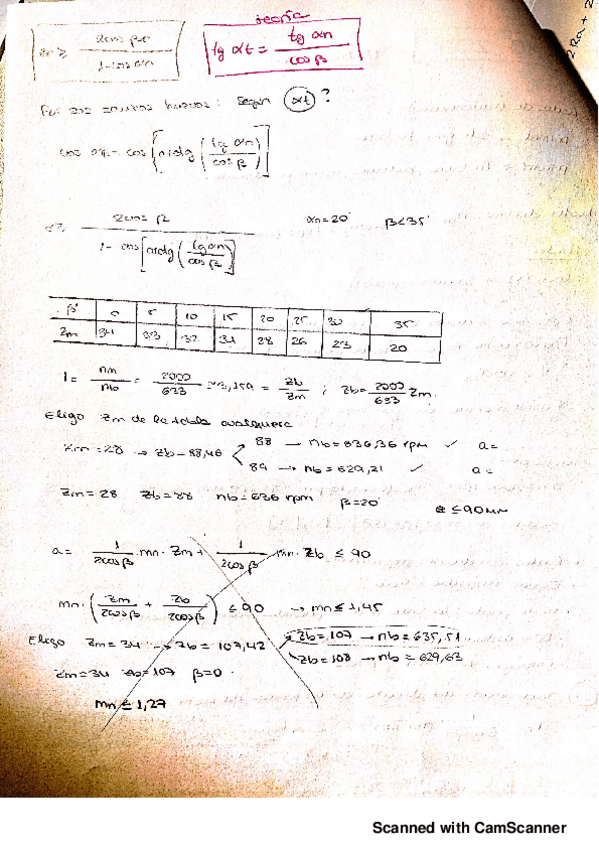 teoría
tg αt = tg αn / cos β
2Ra + 2
Zn ≥ 2 cos β / 1 - cos αn
según αt ?
cos αt = cos [arctg (tg αn / cos β)]
2 cos β / 1 - cos [arctg (tg αn / cos β)]
αn = 20° β < 35°
β° 0 5 10 15 20 25 30 35
Zm 34 33 32 31 28 26 23 20
i = nm / nb = 2000 / 633 = 3,159 = Zb / Zm ; Zb = 2000 / 633 Zm.
Eligo Zm de la tabla cualquiera
Zm = 28 → Zb = 88,46
88 → nb = 636,36 rpm ✓ a =
89 → nb = 629,21 ✓ a =
Zm = 28 Zb = 88 nb = 636 rpm β = 20° a ≤ 90 mm
a = 1 / 2cosβ · mn · Zm + 1 / 2cosβ · mn · Zb ≤ 90
mn · (Zm / 2cosβ + Zb / 2cosβ) ≤ 90 → mn ≤ 1,45
Eligo Zm = 34 → Zb = 107,42
Zb = 107 → nb = 635,51
Zb = 108 → nb = 629,63
Zm = 34 Zb = 107 β = 0
mn ≤ 1,27
Scanned with CamScanner